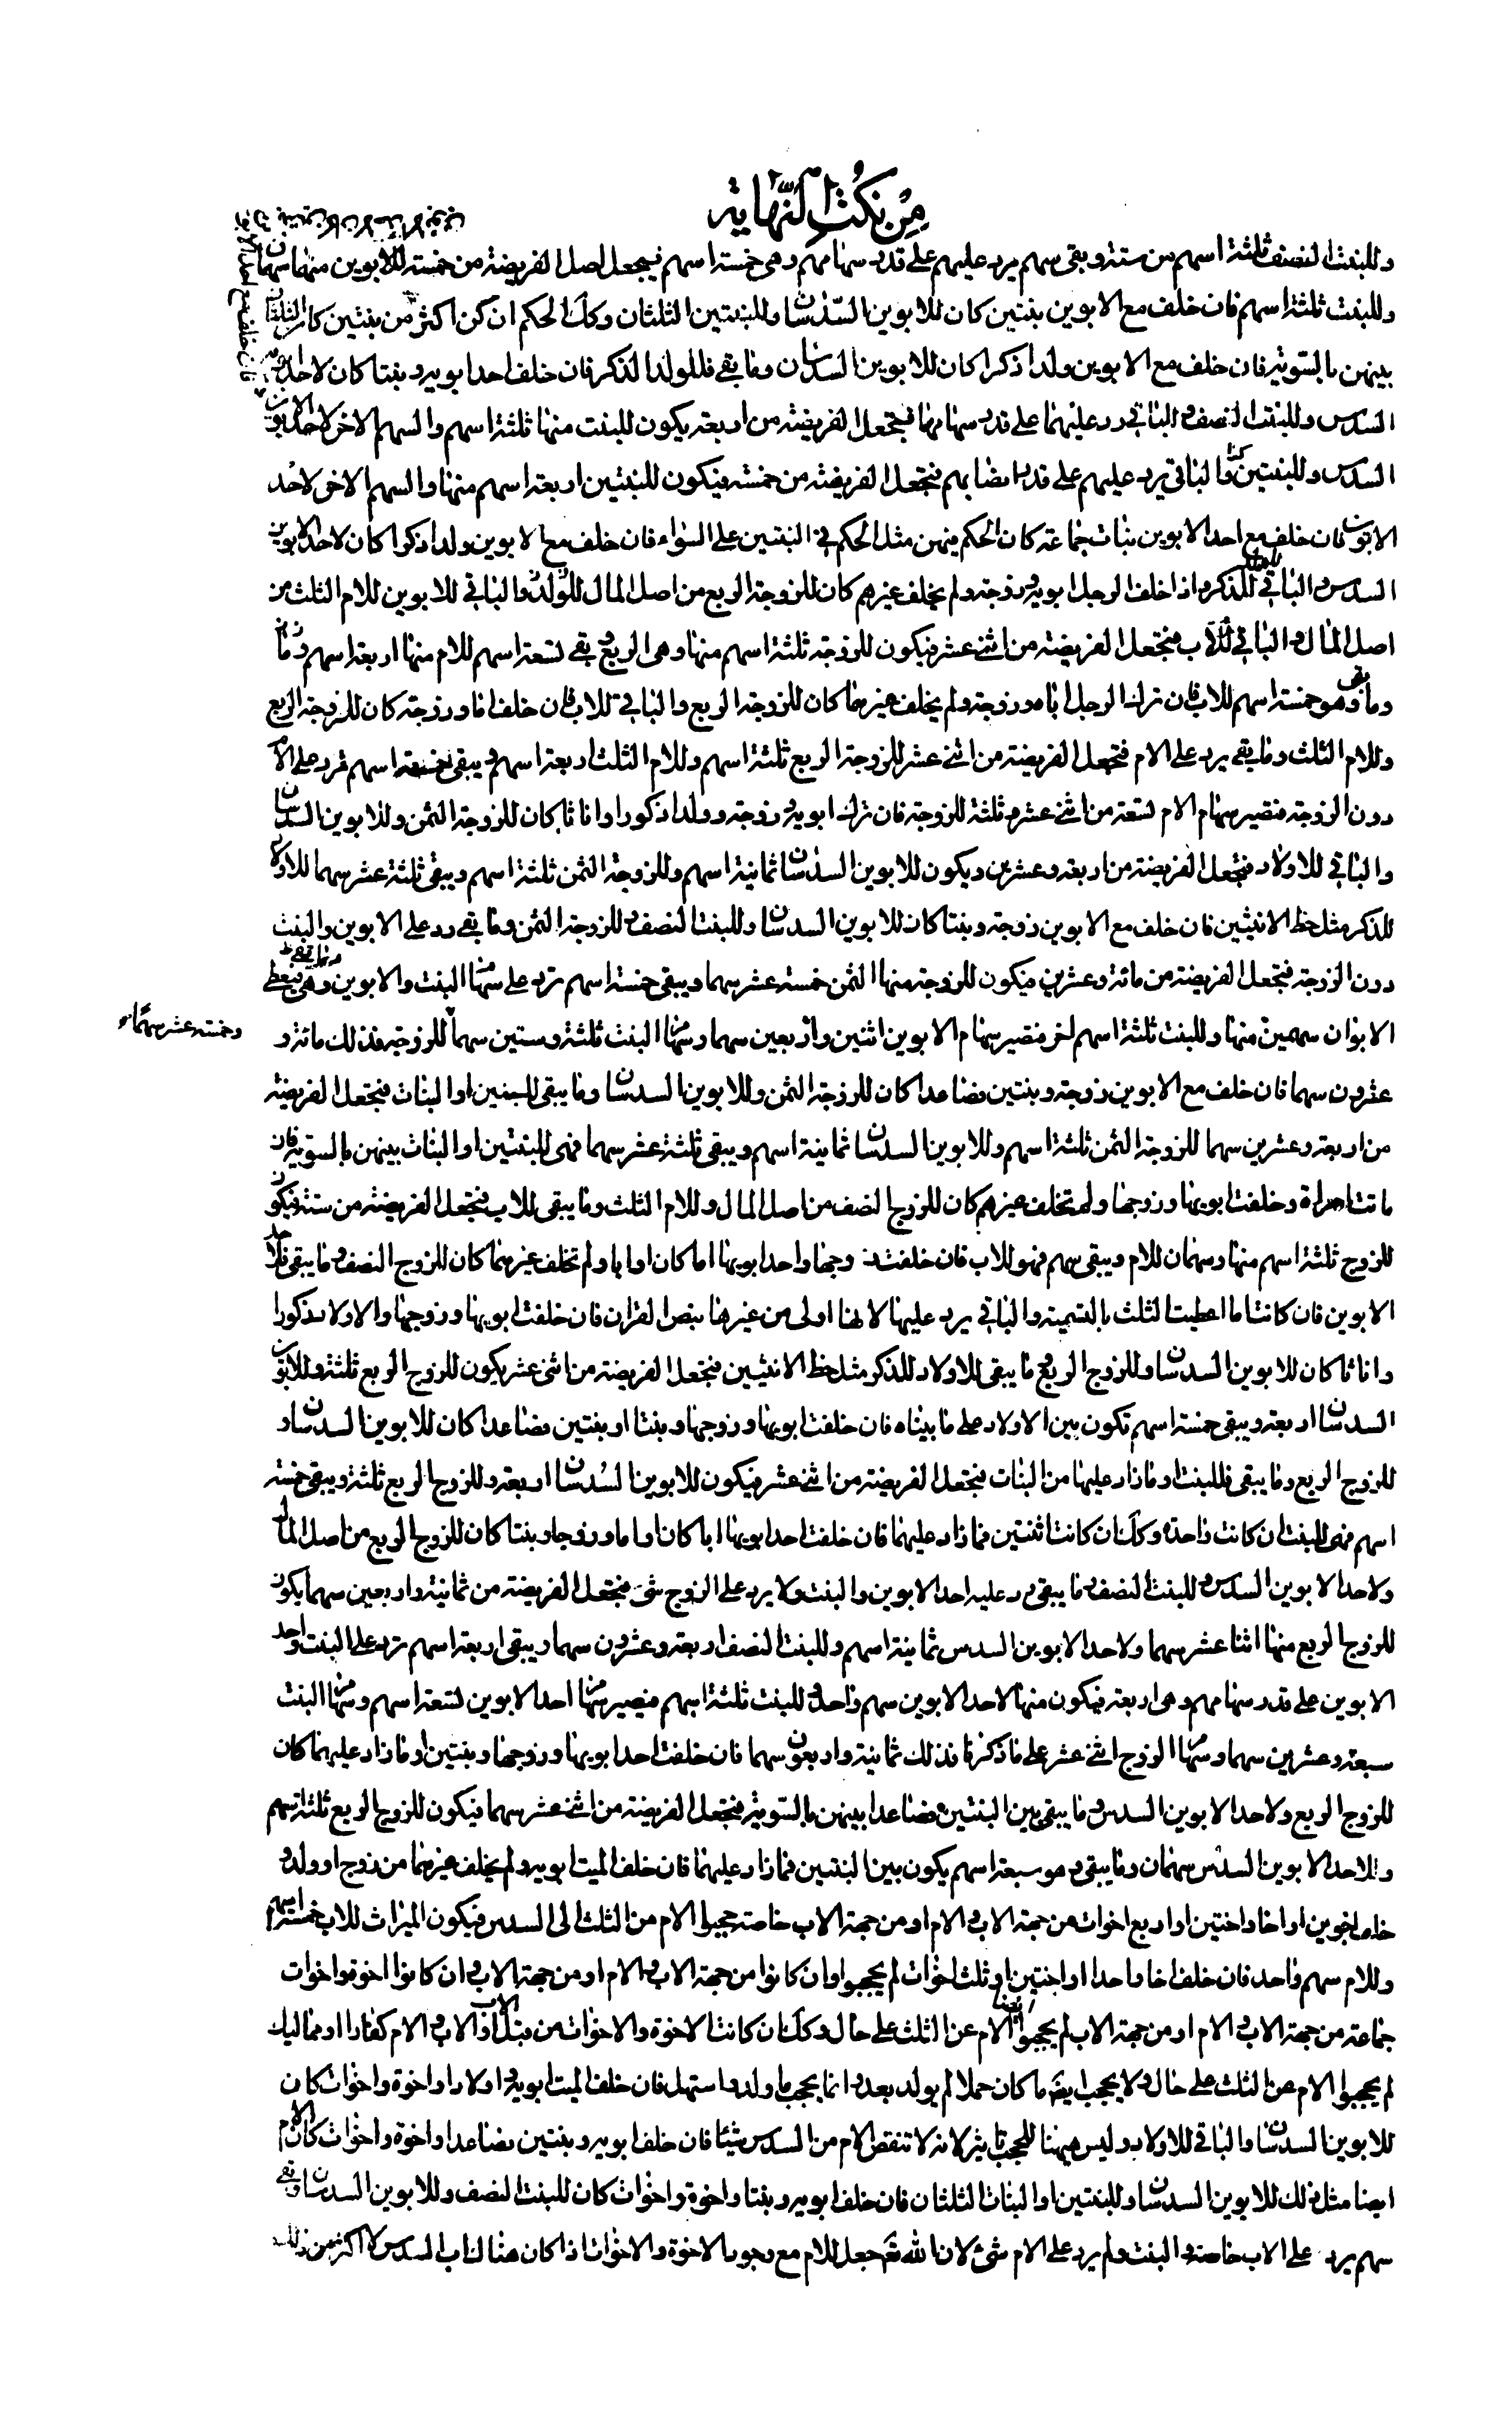 من نكت النهاية
وللبنت النصف ثلثة اسهم من ستة ويبقى سهم يرد عليهم على قدر سهامهم وهى خمسة اسهم فيجعل اصل الفريضة من خمسة للابوين منها سهمان
وللبنت ثلثة اسهم فان خلف مع الابوين بنتين كان للابوين السدسان وللبنتين الثلثان وكك الحكم ان كن اكثر من بنتين كان الثلثان
بينهن بالسوية فان خلف مع الابوين ولدا ذكرا كان للابوين السدسان وما بقى فللولد الذكر فان خلف احد ابويه وبنتا كان لاحد
السدس وللبنت النصف والباقى رد عليهما على قدر سهامهما فيجعل الفريضة من اربعة يكون للبنت منها ثلثة اسهم والسهم الاخر لاحد الابوين
السدس وللبنتين والباقى يرد عليهم على قدر انصبائهم فتجعل الفريضة من خمسة فيكون للبنتين اربعة اسهم منها والسهم الاخر لاحد
الابوين فان خلف مع احد الابوين بنات جماعة كان الحكم فيهن مثل الحكم فى البنتين على السواء فان خلف مع الابوين ولدا ذكرا كان لاحد الابوين
السدس والباقى للذكر واذا خلف الرجل ابويه وزوجة ولم يخلف غيرهم كان للزوجة الربع من اصل المال والباقى للابوين للام الثلث من
اصل المال والباقى للاب فتجعل الفريضة من اثنى عشر فيكون للزوجة ثلثة اسهم منها وهى الربع بقى تسعة اسهم للام منها اربعة اسهم
وما بقى وهو خمسة اسهم للاب فان ترك الرجل اباه وزوجة ولم يخلف غيرهما كان للزوجة الربع والباقى للاب فان خلف اما وزوجة كان للزوجة الربع
وللام الثلث وما بقى يرد على الام فتجعل الفريضة من اثنى عشر للزوجة الربع ثلثة اسهم وللام الثلث اربعة اسهم ويبقى خمسة اسهم فرد على الام
دون الزوجة فتصير سهام الام تسعة من اثنى عشر وثلثة للزوجة فان ترك ابويه وزوجة وولدا ذكورا واناثا كان للزوجة الثمن وللابوين السدسان
والباقى للاولاد فتجعل الفريضة من اربعة وعشرين ويكون للابوين السدسان ثمانية اسهم وللزوجة الثمن ثلثة اسهم ويبقى ثلثة عشر سهما للاولاد
للذكر مثل حظ الانثيين فان خلف مع الابوين زوجة وبنتا كان للابوين السدسان وللبنت النصف وللزوجة الثمن وما بقى رد على الابوين والبنت
دون الزوجة فتجعل الفريضة من مائة وعشرين فيكون للزوجة منها الثمن خمسة عشر سهما ويبقى خمسة اسهم ترد على سهام البنت والابوين فيعطى
الابوان سهمين منها وللبنت ثلثة اسهم اخر فتصير سهام الابوين اثنين واربعين سهما وسهام البنت ثلثة وستين سهما للزوجة فذلك مائة و
وخمسة عشر سهما
عشرون سهما فان خلف مع الابوين زوجة وبنتين فصاعدا كان للزوجة الثمن وللابوين السدسان وما يبقى للبنتين او البنات فتجعل الفريضة
من اربعة وعشرين سهما للزوجة الثمن ثلثة اسهم وللابوين السدسان ثمانية اسهم ويبقى ثلثة عشر سهما فهى للبنتين او البنات بينهن بالسوية فان
ماتت امراة وخلفت ابويها وزوجها ولم تخلف غيرهم كان للزوج النصف من اصل المال وللام الثلث وما يبقى للاب فتجعل الفريضة من ستة فيكون
للزوج ثلثة اسهم منها وسهمان للام ويبقى سهم فهو للاب فان خلفت زوجها واحد ابويها اما كان او ابا ولم تخلف غيرهما كان للزوج النصف وما يبقى فلاحد
الابوين فان كانت اما اعطيت الثلث بالتسمية والباقى يرد عليها لانها اولى من غيرها بنص القران فان خلفت ابويها وزوجها والاولاد ذكورا
واناثا كان للابوين السدسان وللزوج الربع وما يبقى للاولاد للذكر مثل حظ الانثيين فتجعل الفريضة من اثنى عشر يكون للزوج الربع ثلثة وللابوين
السدسان اربعة ويبقى خمسة اسهم تكون بين الاولاد على ما بيناه فان خلفت ابويها وزوجها وبنتا او بنتين فصاعدا كان للابوين السدسان و
للزوج الربع وما يبقى فللبنت او ما زاد عليها من البنات فتجعل الفريضة من اثنى عشر فيكون للابوين السدسان اربعة وللزوج الربع ثلثة ويبقى خمسة
اسهم فهى للبنت ان كانت واحدة وكك ان كانت اثنتين فما زاد عليهما فان خلفت احد ابويها ابا كان او اما وزوجا وبنتا كان للزوج الربع من اصل المال
ولاحد الابوين السدس وللبنت النصف وما يبقى رد عليه احد الابوين والبنت ولا يرد على الزوج شئ فتجعل الفريضة من ثمانية واربعين سهما يكون
للزوج الربع منها اثنا عشر سهما ولاحد الابوين السدس ثمانية اسهم وللبنت النصف اربعة وعشرون سهما ويبقى اربعة اسهم ترد على البنت واحد
الابوين على قدر سهامهم وهى اربعة فيكون منها لاحد الابوين سهم واحد وللبنت ثلثة اسهم فتصير سهام احد الابوين تسعة اسهم وسهام البنت
سبعة وعشرين سهما وسهام الزوج اثنى عشر على ما ذكرنا فذلك ثمانية واربعون سهما فان خلفت احد ابويها وزوجها وبنتين او ما زاد عليهما كان
للزوج الربع ولاحد الابوين السدس وما يبقى بين البنتين فصاعدا بينهن بالسوية فتجعل الفريضة من اثنى عشر سهما فيكون للزوج الربع ثلثة اسهم
ولاحد الابوين السدس سهمان وما يبقى وهو سبعة اسهم يكون بين البنتين فما زاد عليهما فان خلف الميت ابويه ولم يخلف غيرهما من زوج او ولد و
خلف اخوين او اخا واختين او اربع اخوات من جهة الاب والام او من جهة الاب خاصة حجبوا الام من الثلث الى السدس فيكون الميراث للاب خمسة اسهم
وللام سهم واحد فان خلف اخا واحدا او اختين او ثلث اخوات لم يحجبوا وان كانوا من جهة الاب والام او من جهة الاب وان كانوا اخوة واخوات
جماعة من جهة الاب والام او من جهة الاب لم يحجبوا الام عن الثلث على حال وكك ان كانت الاخوة والاخوات من قبل الاب او الاب والام كفارا او مماليك
لم يحجبوا الام عن الثلث على حال ولا يحجب ايضا ما كان حملا لم يولد بعد وانما يحجب ما ولد واستهل فان خلف الميت ابويه واولادا واخوة واخوات كان
للابوين السدسان والباقى للاولاد وليس ههنا للحجب تاثير لانه لا تنقص الام من السدس شيئا فان خلف ابويه وبنتين فصاعدا واخوة واخوات كان
ايضا مثل ذلك للابوين السدسان وللبنتين او البنات الثلثان فان خلف ابويه وبنتا واخوة واخوات كان للبنت النصف وللابوين السدسان وبقى
سهم يرد على الاب خاصة والبنت ولم يرد على الام شئ لان الله تعم جعل للام مع وجود الاخوة والاخوات اذا كان هناك اب السدس لا اكثر من ذلك